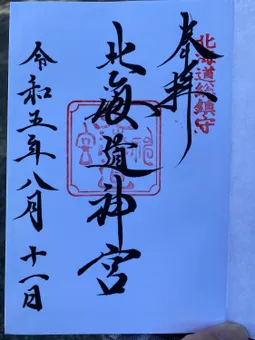 北海道総鎮守
奉拝
北海道神宮
令和五年八月十一日